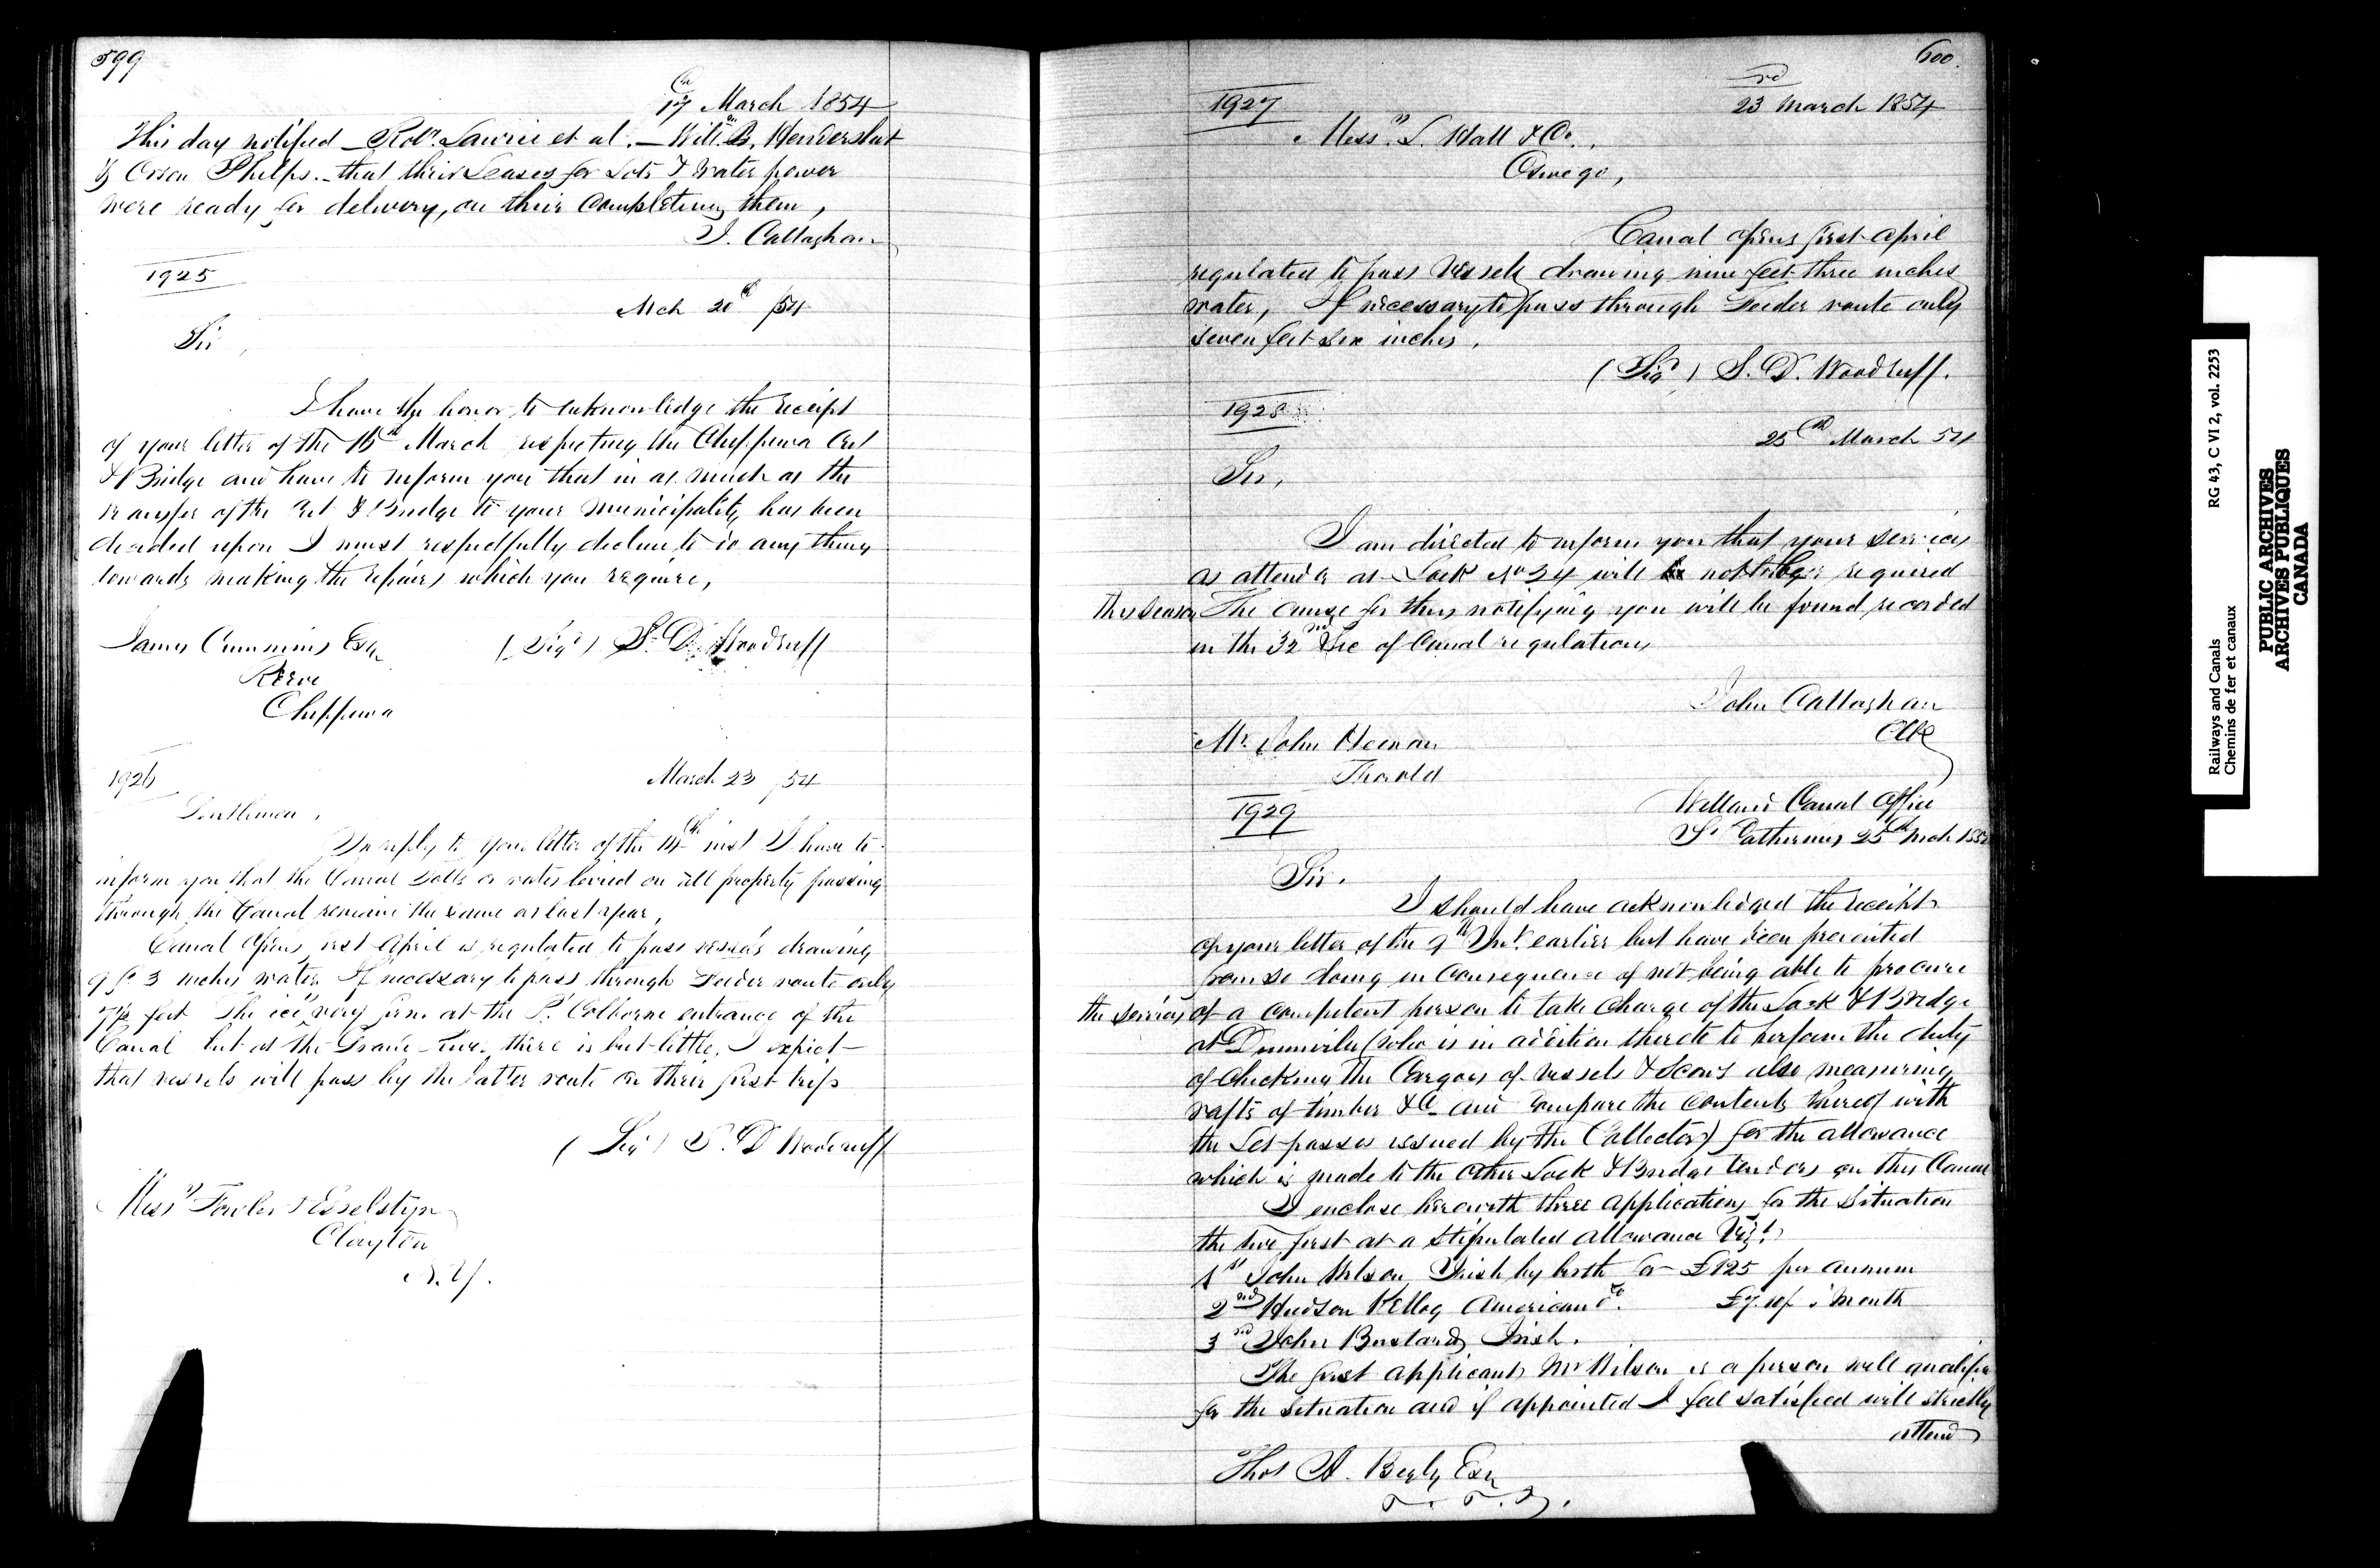 599
17th March 1854
This day notified Robt. Lawrie et al. — Willm. B. Hendershot
& Orson Phelps. that their Leases for Lots & Water power
were ready for delivery, on their Completing them,
J. Callaghan
1925
Mch 20th /54
Sir,
I have the honor to acknowledge the receipt
of your letter of the 16th March respecting the Chippewa Cut
& Bridge and have to inform you that in as much as the
transfer of the Cut & Bridge to your Municipality has been
decided upon I must respectfully decline to do any thing
towards making the repairs which you require,
James Cummins Esqr
(Sigd) S. D. Woodruff
Reeve
Chippewa
1926
March 23 /54
Gentlemen,
In reply to your letter of the 14th inst I have to
inform you that the Canal Tolls or rates levied on all property passing
through the Canal remain the same as last year,
Canal Opens first April is regulated to pass vessels drawing
9 ft 3 inches water If necessary to pass through Feeder route only
7½ feet The ice very firm at the Pt. Colborne entrance of the
Canal but at the Grand River there is but little, I expect
that vessels will pass by the latter route on their first trips
(Sigd) S. D Woodruff
Messrs Fowler & Esselstyn
Clayton
N. Y.
600.
1927
23rd March 1854
Messrs. S. Hall & Co.,
Oswego,
Canal opens first April
regulated to pass Vessels drawing nine feet three inches
water, If necessary to pass through Feeder route only
seven feet six inches.
(Sigd) S. D. Woodruff.
1928
25th March 54
Sir,
I am directed to inform you that your services
as attendt at Lock No 24 will not be required
this season The cause for thus notifying you will be found recorded
in the 32nd Sec of Canal regulations
John Callaghan
Clk
Mr. John Heenan
Thorold
1929
Welland Canal Office
St Catherines 25th Mch 185
Sir.
I should have acknowledged the receipt
of your letter of the 9th Inst. earlier but have been prevented
from so doing in Consequence of not being able to procure
the services of a competent person to take Charge of the Lock & Bridge
at Dunnville (who is in addition thereto to perform the duty
of Checking the Cargoes of Vessels & Scows also measuring
rafts of timber &c and Compare the contents thereof with
the Let-passes issued by the Collector) for the allowance
which is made to the other Lock & Bridge tenders on this Canal
I enclose herewith three applications for the Situation
the two first at a Stipulated allowance Viz.
1st John Wilson Irish by birth for £125 per annum
2nd Hudson Kellog American do. £7.10/. month
3rd John Bustard Irish.
The first applicant Mr Wilson is a person well qualified
for the situation and if appointed I feel satisfied will strictly
attend
Thos A. Begly Esqr
RG 43, C VI 2, vol. 2253
Railways and Canals
Chemins de fer et canaux
PUBLIC ARCHIVES
ARCHIVES PUBLIQUES
CANADA